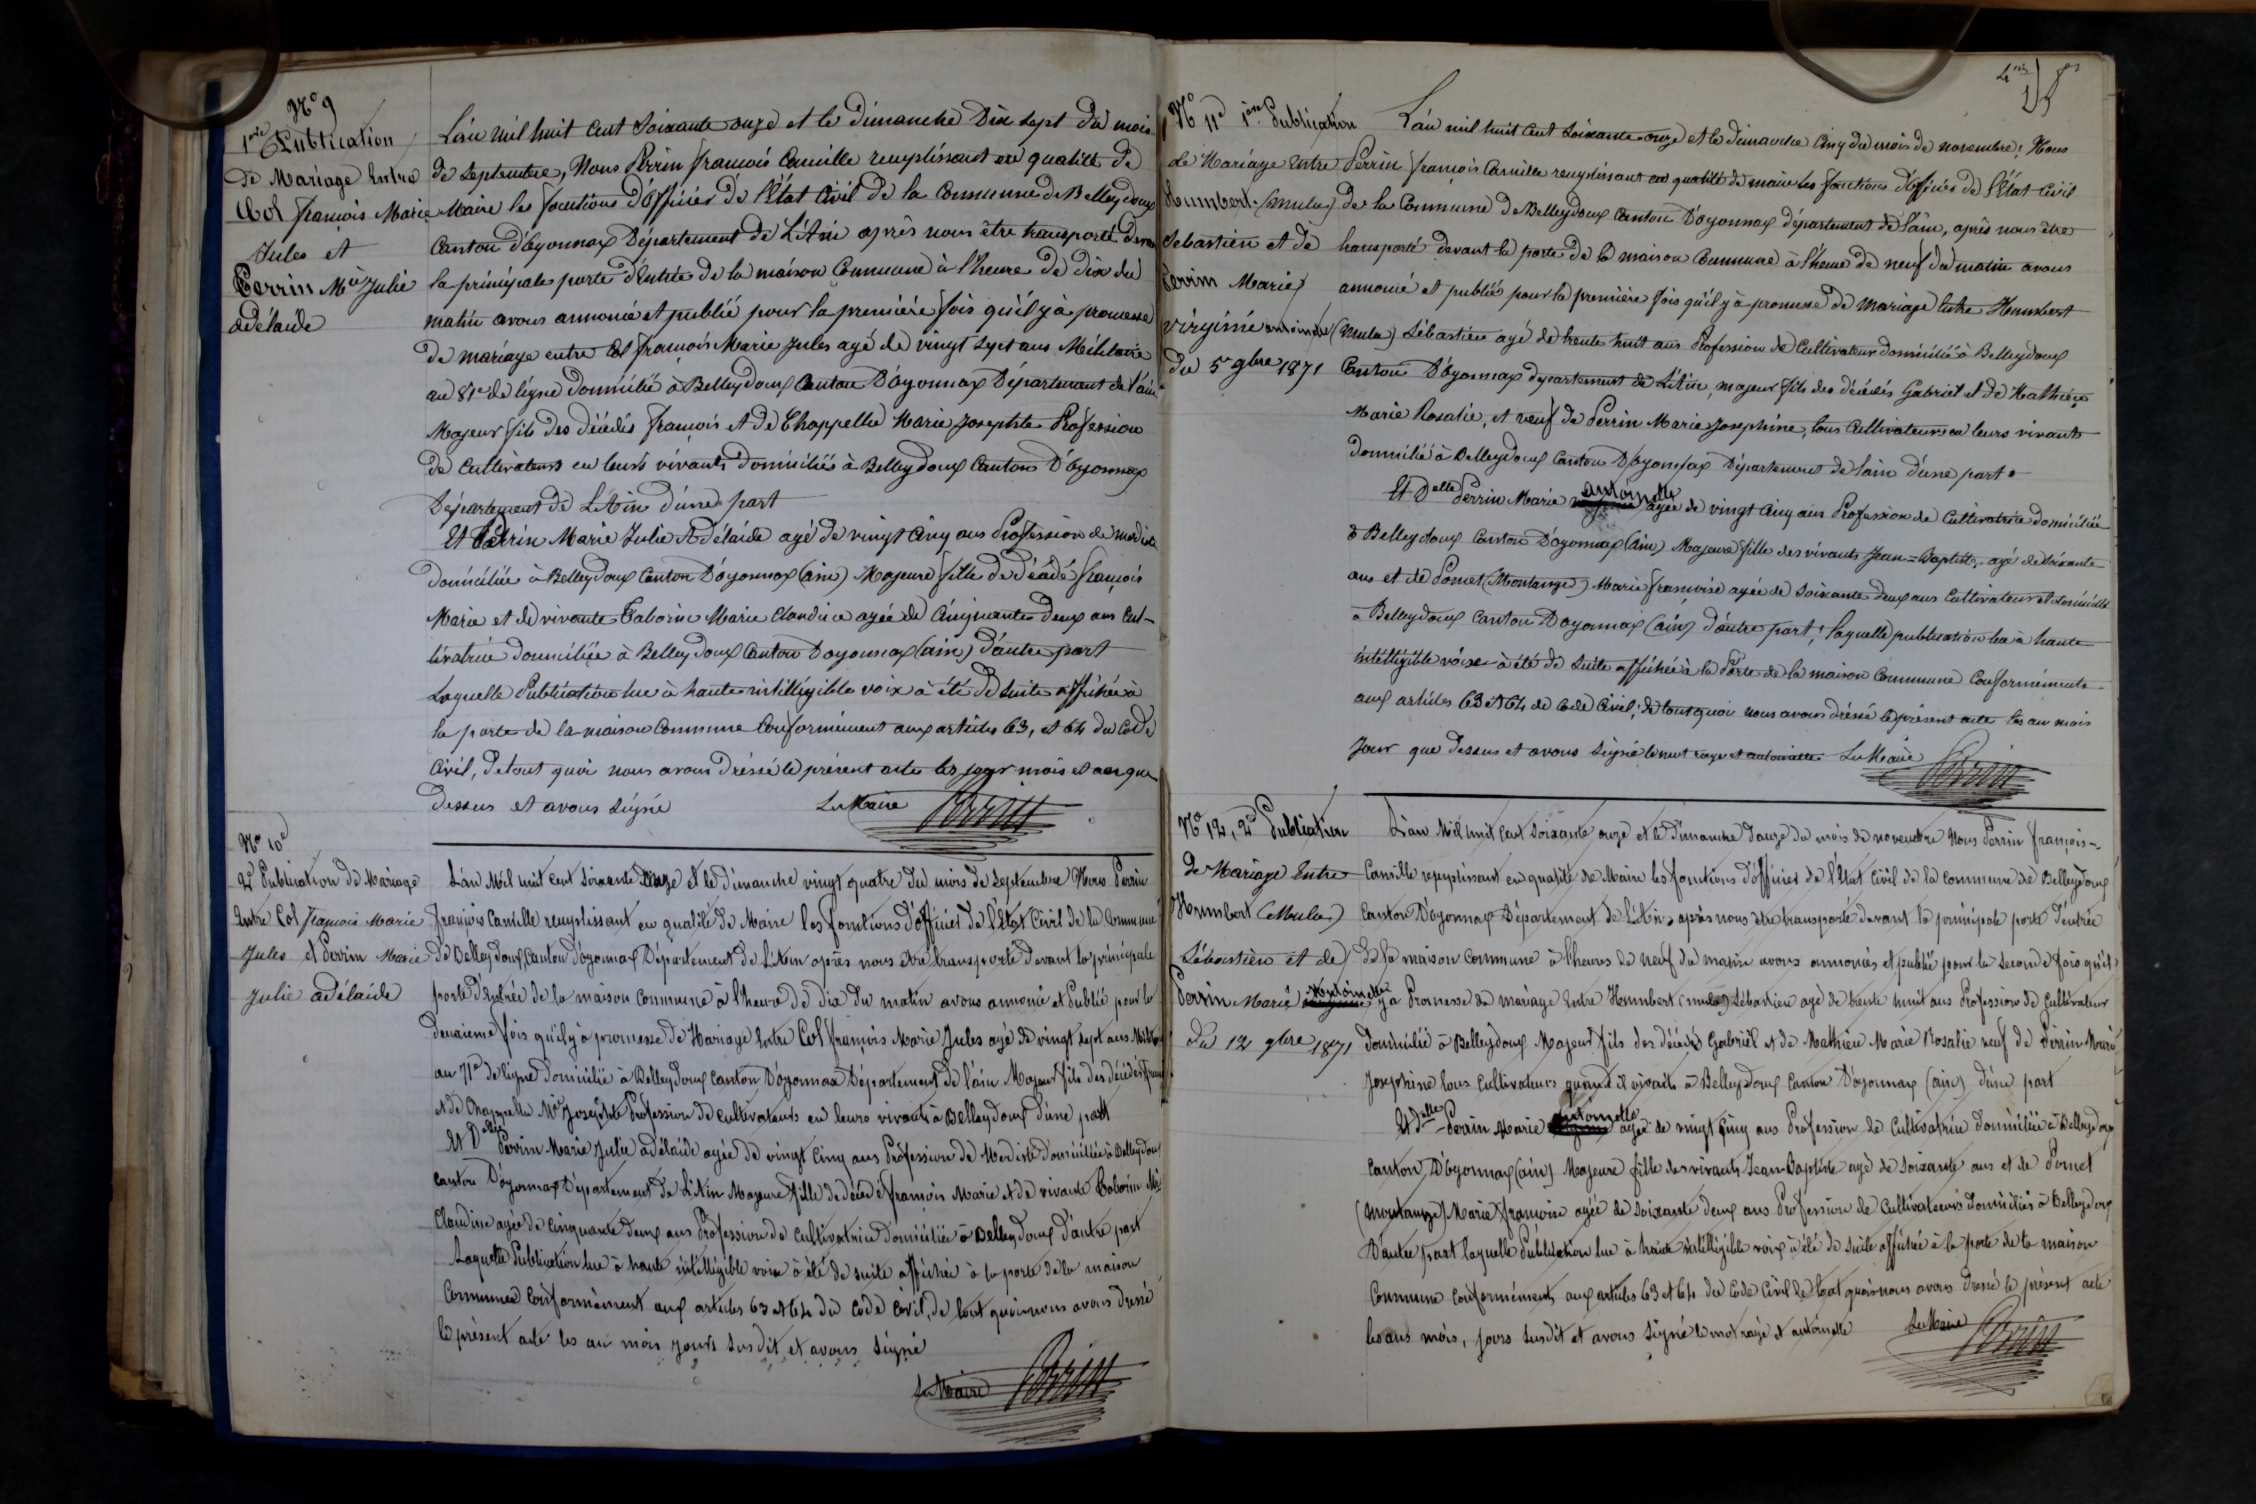 Nº 9
1ère Publication
de Mariage Entre
Col françois Marie
Jules et
Perrin Mie Julie
adélaide
L'an mil huit cent soixante onze et le dimanche Dix sept du mois
de septembre, Nous Perrin françois Camille remplissant en qualité de
Maire les fonctions d'officier de l'État Civil de la Commune de Belleydoux
Canton d'Oyonnax Département de L'Ain après nous être transporté devant
la principale porte d'Entrée de la maison Commune à l'heure de dix du
matin avons annoncé et publié pour la première fois qu'il y à promesse
de mariage entre Col françois Marie Jules agé de vingt sept ans Militaire
au 81e de ligne domicilié à Belleydoux Canton D'Oyonnax Département de l'ain
Majeur fils des décédés françois et de Chappellu Marie Josephte Profession
de Cultivateurs en leurs vivants domiciliés à Belleydoux Canton D'Oyonnax
Département de L'Ain d'une part
Et Perrin Marie Julie Adélaide agé de vingt cinq ans Profession de modiste
domiciliée à Belleydoux Canton D'oyonnax (ain) Majeure fille de décédé françois
Marie et de vivante Taborin Marie Claudine agée de Cinquante deux ans Cul-
tivatrice domiciliée à Belleydoux Canton D'oyonnax (ain) d'autre part
Laquelle Publication lue à haute intelligible voix à été de suite affichée à
la porte de la maison commune Conformément aux articles 63, et 64 du Code
Civil, de tout quoi nous avons dressé le présent acte les jour mois et an que
dessus et avons signé Le Maire Perrin
Nº 10e
2e Publication de Mariage
Entre Col françois Marie
Jules et Perrin Marie
Julie adélaide
L'an Mil huit cent soixante onze et le dimanche vingt quatre du mois de septembre Nous Perrin
françois Camille remplissant en qualité de Maire les fonctions d'officier de l'État Civil de la Commune
de Belleydoux Canton d'oyonnax Département de L'Ain après nous être transporté devant la principale
porte d'Entrée de la maison commune à l'heure de dix du matin avons annoncé et Publié pour la
deuxieme fois qu'il y à promesse de Mariage Entre Col françois Marie Jules agé de vingt sept ans
au 71e de ligne domicilié à Belleydoux Canton D'Oyonnax Département de l'ain Majeur fils des décédés
et de Chappellu Mie Josephte Profession de cultivateurs en leurs vivants à Belleydoux d'une part
Et Delle Perrin Marie Julie adélaide agée de vingt cinq ans Profession de Modiste domiciliée à Belleydoux
canton D'oyonnax Département de L'Ain Majeure fille de décédé françois Marie et de vivante Taborin Mie
Claudine agée de cinquante deux ans Profession de cultivatrice domiciliée à Belleydoux d'autre part
Laquelle Publication lue à haute intelligible voix à été de suite affichée à la porte de la maison
Commune conformément aux articles 63 et 64 du Code Civil, de tout quoi nous avons dressé
le présent acte les an mois jours susdit et avons signé
Le Maire Perrin
Nº 11e 1ère Publication
de Mariage Entre
Humbert (Mula)
Sebastien et de
Perrin Marie
virginie antoinette
du 5 9bre 1871
L'an mil huit cent soixante onze et le dimanche cinq du mois de novembre; Nous
Perrin françois Camille remplissant en qualité de maire les fonctions d'officier de l'État civil
de la Commune de Belleydoux Canton D'oyonnax département de l'ain, après nous être
transporté devant la porte de la maison Commune à l'heure de neuf du matin avons
annoncé et publié pour la première fois qu'il y à promesse de Mariage Entre Humbert
(Mula) Sébastien agé de trente huit ans Profession de Cultivateur domicilié à Belleydoux
Canton D'oyonnax département de L'Ain, majeur fils des décédés Gabriel et de Mathieu
Marie Rosalie, et veuf de Perrin Marie Josephine, tous Cultivateurs en leurs vivants
domicilié à Belleydoux Canton D'oyonnax Département de l'ain d'une part.
Et Delle Perrin Marie antoinette agée de vingt cinq ans Profession de Cultivatrice domiciliée
à Belleydoux Canton D'oyonnax (ain) Majeure fille des vivants Jean-Baptiste, agé de soixante
ans et de Pomet (Montange) Marie françoise agée de soixante deux ans Cultivateurs domiciliés
à Belleydoux Canton D'oyonnax (ain) d'autre part; laquelle publication lue à haute
intelligible voix à été de suite affichée à la Porte de la maison Commune Conformément
aux articles 63 et 64 de Code Civil; de tout quoi nous avons dressé le présent acte les an mois
jour que dessus et avons signé le mot rayé et antoinette Le Maire Perrin
Nº 12, 2e Publication
de Mariage Entre
Humbert (Mula)
Sébastien et de
Perrin Marie Antoinette
du 12 9bre 1871
L'an Mil huit cent soixante onze et le dimanche douze du mois de novembre Nous Perrin françois-
Camille remplissant en qualité de Maire les fonctions d'officier de l'État Civil de la commune de Belleydoux
Canton D'oyonnax Département de L'Ain, après nous être transporté devant la principale porte d'entrée
de la maison Commune à l'heure de neuf du matin avons annoncés et publié pour la seconde fois qu'il
y a Promesse de mariage Entre Humbert (mula) Sébastien agé de trente huit ans Profession de Cultivateur
domicilié à Belleydoux Majeur fils des décédés Gabriel et de Mathieu Marie Rosalie veuf de Perrin Marie
Josephine tous Cultivateurs quand il vivait à Belleydoux Canton D'oyonnax (ain) d'une part
Et delle Perrin Marie antoinette agée de vingt cinq ans Profession de Cultivatrice domiciliée à Belleydoux
Canton D'oyonnax (ain) Majeure fille des vivants Jean-Baptiste agé de soixante ans et de Pomet
(Montange) Marie françoise agée de soixante deux ans Profession de Cultivateurs domiciliés à Belleydoux
D'autre part laquelle Publication lue à haute intelligible voix à été de suite affichée à la porte de la maison
Commune conformément aux articles 63 et 64 du Code Civil de tout quoi nous avons dressé le présent acte
les ans mois, jours susdit et avons signé le mot rayé et antoinette Le Maire Perrin